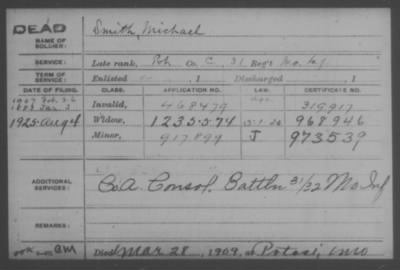 DEAD
NAME OF SOLDIER: Smith, Michael
SERVICE: Late rank, Co. C, 31 Reg't Mo. Inf.
TERM OF SERVICE: Enlisted , 1 Discharged , 1
DATE OF FILING. CLASS. APPLICATION NO. LAW. CERTIFICATE NO.
1907 Feb. 26
1883 Jan 3 Invalid, 468479 319917
1925-Aug 4 Widow, 1235574 5-1-20 968946
Minor, 917899 J 973539
ADDITIONAL SERVICES: Co A. Consol. Battln 31/32 Mo Inf
REMARKS:
Died Mar 28, 1909, at Potosi, Mo